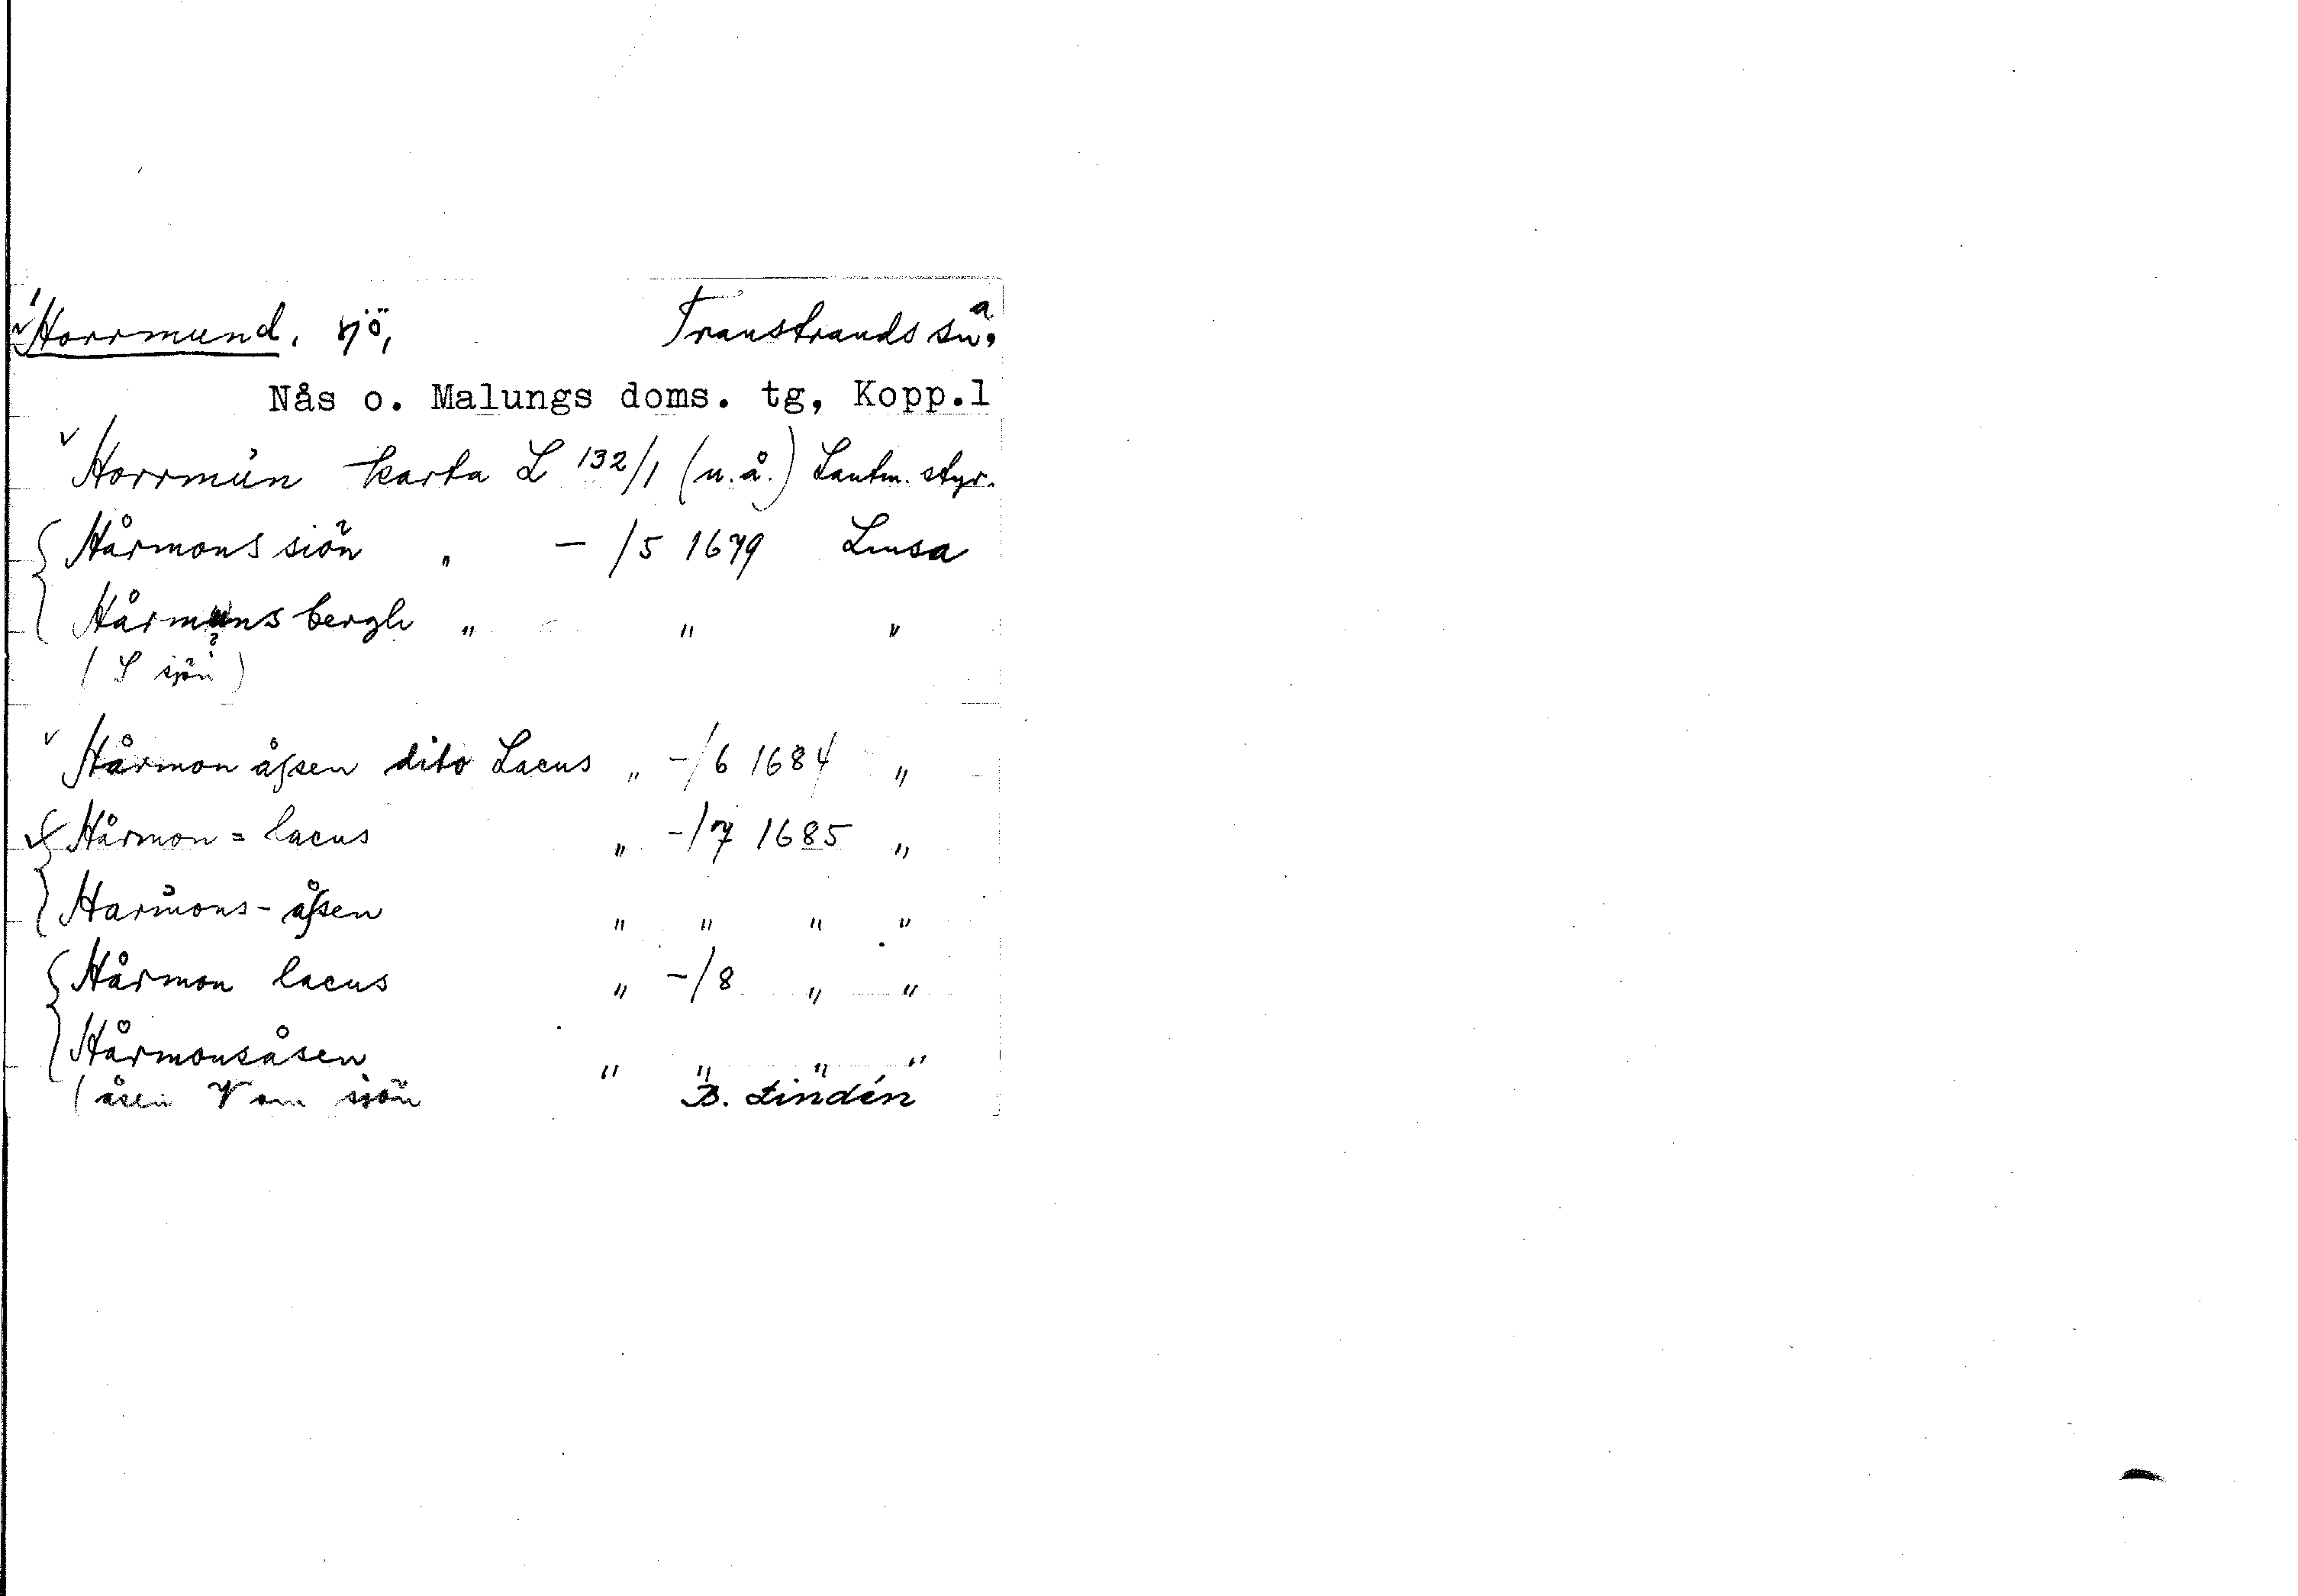 Horrmund, sjö, Transtrands sn, a
Nås o. Malungs doms. tg, Kopp.l
Horrmŭn karta L 132/1 (u.å.) Lantm. styr.
Hårmons siön " - /5 1679 Lmsa
Hårmuns bergh " " "
(S sjön)
Hårmon åssen dito Lacus " -/6 1684 "
Hårmon = lacus " -/7 1685 "
Harmons-åssen " " " "
Hårmon lacus " -/8 " "
Hårmonsåsen " " " "
(åsen V om sjön B. Lindén